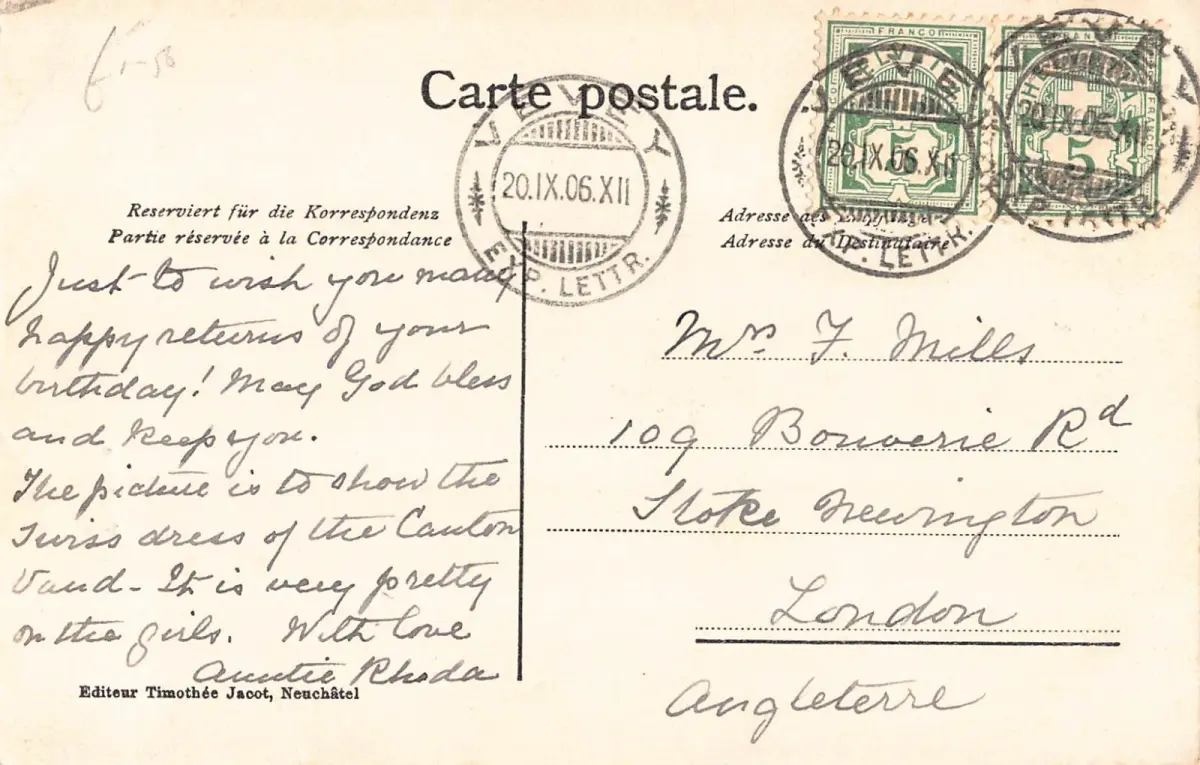 Carte postale.
FRANCO
HELVETIA
5
FRANCO
5
VEVEY
20.IX.06.XII
EXP. LETTR.
VEVEY
20.IX.06.XII
EXP. LETTR.
VEVEY
20.IX.06.XII
EXP. LETTR.
Reserviert für die Korrespondenz
Partie réservée à la Correspondance
Adresse des
Adresse du Destinataire
Just to wish you many
happy returns of your
birthday! May God bless
and keep you.
The picture is to show the
Swiss dress of the Canton
Vaud - It is very pretty
on the girls. With love
Auntie Rhoda
Editeur Timothée Jacot, Neuchâtel
Mrs F. Mills
109 Bouverie Rd
Stoke Newington
London
Angleterre